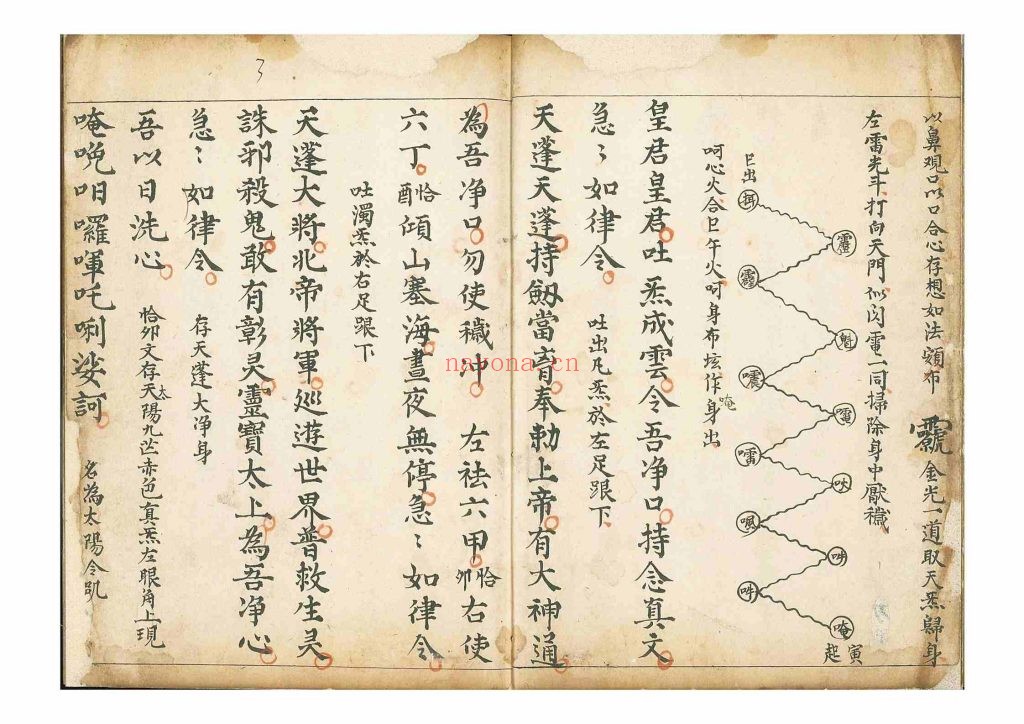 以鼻观口以口合心存想如法頞布 金光一道取天炁歸身
左雷光斗打向天門似闪電一同掃除身中厭穢
寅起
唵
吽
吽
㕫
吙
魁
巳出
呵心火合巳午火呵身布炫作唵身出
皇君皇君吐炁成雲令吾净口持念真文
急〻如律令 吐出凡炁於左足跟下
天蓬天蓬持劔當育奉勅上帝有大神通
為吾净口勿使穢冲 左祛六甲恰卯右使
六丁恰酉傾山塞海晝夜無停急〻如律令
吐濁炁於右足跟下
天蓬大將北帝將軍巡遊世界普救生灵
誅邪殺鬼敢有彰灵靈寶太上為吾净心
急〻如律令 存天蓬大净身
吾以日洗心 恰卯文存天太陽九芒赤色真炁左眼角上現
唵晚咱囉嗶吒唎娑訶 名為太陽令
3
nabona.cn